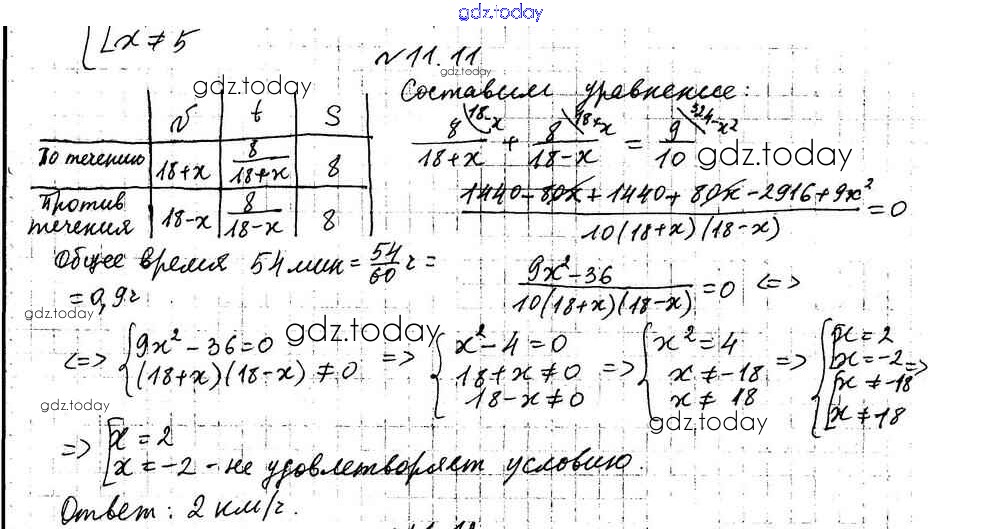 gdz.today
x ≠ 5
№ 11.11
gdz.today
gdz.today
Составим уравнение:
v t S
По течению 18+x 8/(18+x) 8
Против течения 18-x 8/(18-x) 8
8/(18+x) + 8/(18-x) = 9/10
18-x 18+x 324-x²
gdz.today
(1440-80x+1440+80x-2916+9x²)/(10(18+x)(18-x)) = 0
Общее время 54 мин = 54/60 ч =
= 0,9 ч
(9x²-36)/(10(18+x)(18-x)) = 0 <=>
gdz.today
<=> { 9x²-36=0 (18+x)(18-x) ≠ 0 => { x²-4=0 18+x≠0 18-x≠0 => { x²=4 x≠-18 x≠18 => { [ x=2 x=-2 [ x≠-18 x≠18 =>
gdz.today
gdz.today
=> [ x=2
x=-2 - не удовлетворяет условию.
Ответ: 2 км/ч.